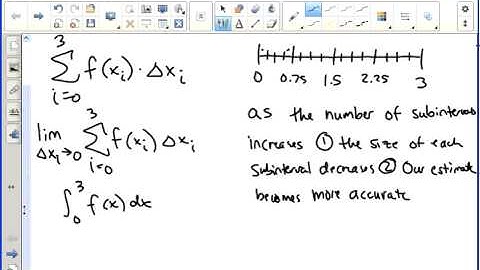 3
∑ f(xᵢ) · Δxᵢ
i=0
3
lim ∑ f(xᵢ) Δxᵢ
Δxᵢ→0 i=0
∫₀³ f(x) dx
0 0.75 1.5 2.25 3
as the number of subintervals
increases ① the size of each
subinterval decreases ② Our estimate
becomes more accurate